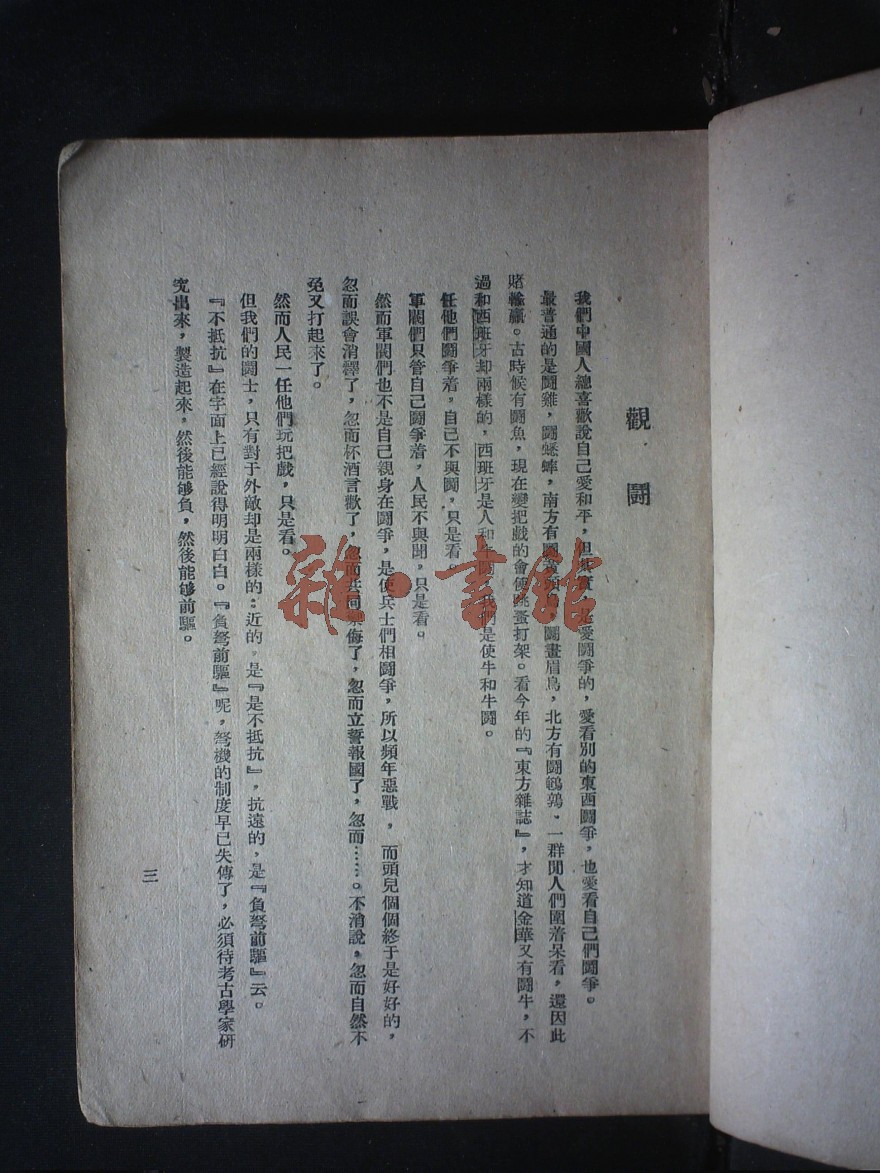 觀鬪
我們中國人總喜歡說自己愛和平,但其實,是愛鬪爭的,愛看別的東西鬪爭,也愛看自己們鬪爭。
最普通的是鬪雞,鬪蟋蟀,南方有鬪黃頭鳥,鬪畫眉鳥,北方有鬪鵪鶉,一群閒人們圍着呆看,還因此
賭輸贏。古時候有鬪魚,現在變把戲的會使跳蚤打架。看今年的『東方雜誌』,才知道金華又有鬪牛,不
過和西班牙却兩樣的,西班牙是人和牛鬪,我們是使牛和牛鬪。
任他們鬪爭着,自己不與鬪,只是看。
軍閥們只管自己鬪爭着,人民不與聞,只是看。
然而軍閥們也不是自己親身在鬪爭,是使兵士們相鬪爭,所以頻年惡戰,而頭兒個個終于是好好的,
忽而誤會消釋了,忽而杯酒言歡了,忽而共同禦侮了,忽而立誓報國了,忽而……。不消說,忽而自然不
免又打起來了。
然而人民一任他們玩把戲,只是看。
但我們的鬪士,只有對于外敵却是兩樣的:近的,是『是不抵抗』,抗遠的,是『負弩前驅』云。
『不抵抗』在字面上已經說得明明白白。『負弩前驅』呢,弩機的制度早已失傳了,必須待考古學家研
究出來,製造起來,然後能够負,然後能够前驅。
三
雜·書館